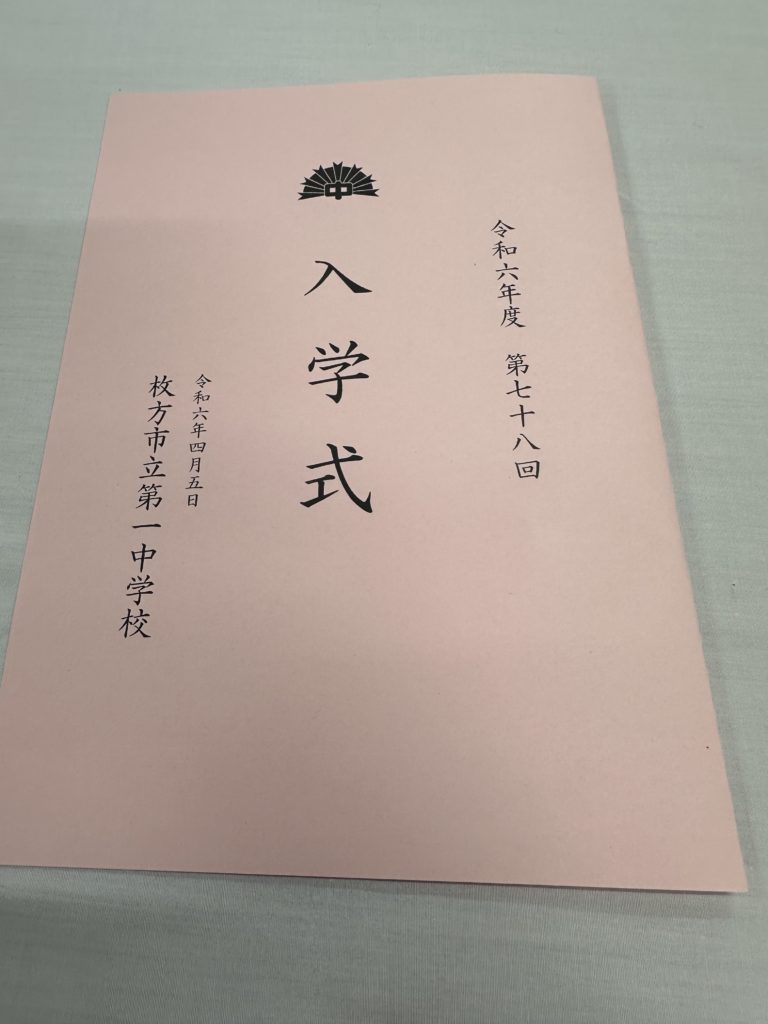 令和六年度　第七十八回
中
入学式
令和六年四月五日
枚方市立第一中学校